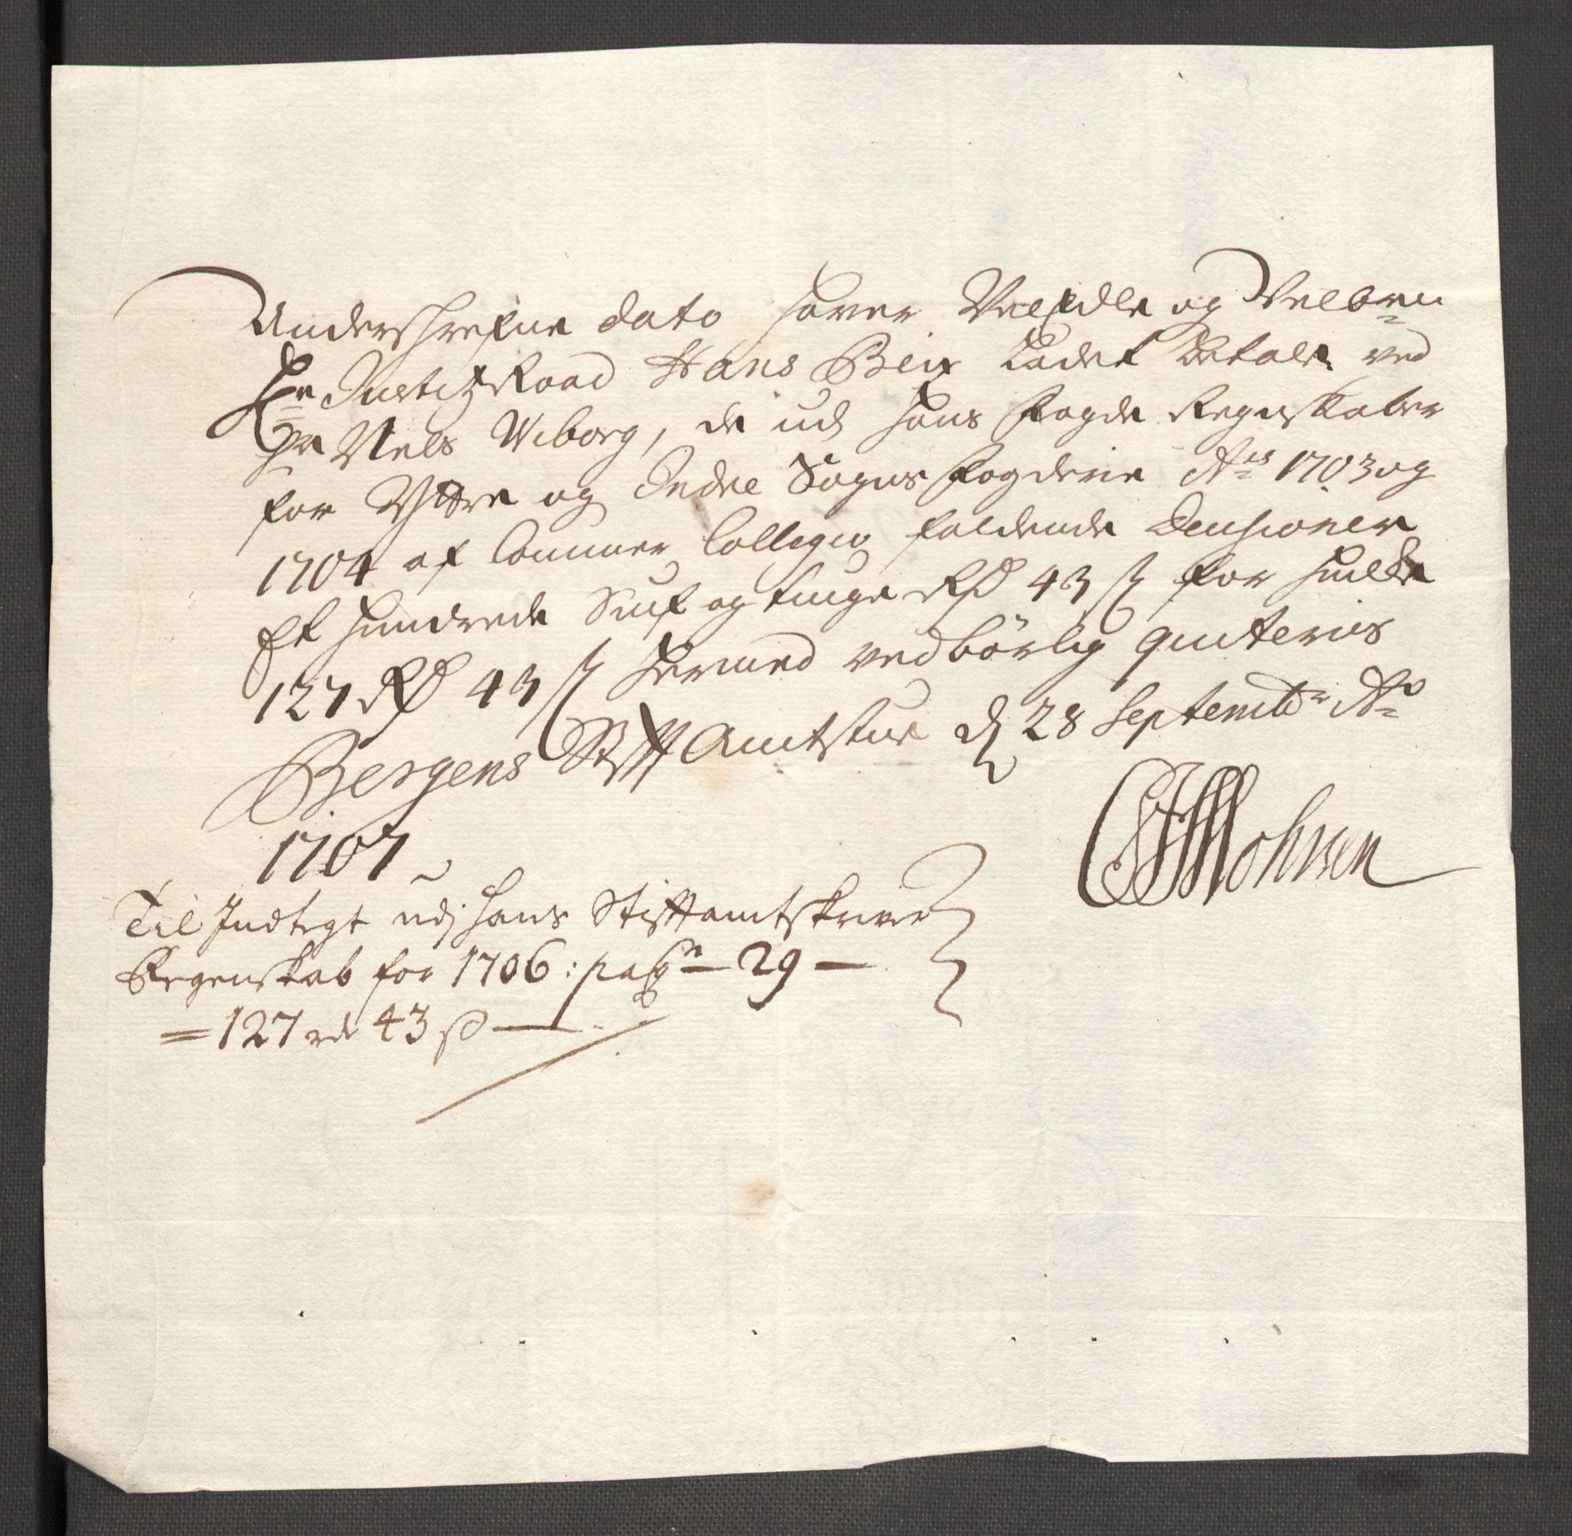 Underschrefne dato hafver Velædle og Velb: 
Hr JustitzRaad Hans Beix Ladet Betale ved
Hr Niels Wiborg, de udj hans Fogde Regenskaber
for Yttre og Indre Sogns Fogderie Ao 1703 og
1704 af Cammer Collegio faldende Decisioner
Et Hundrede Siuf og tiuge Rd 43 ß for huilke
127 Rd 43 ß hermed vedbörlig quiteris
Bergens Stift Amtstue d 28 Septembr Ao
1707
Til Indtegt udj hans Stiftamtskriver
Regenskab for 1706: pag 29
= 127 rd 43 ß